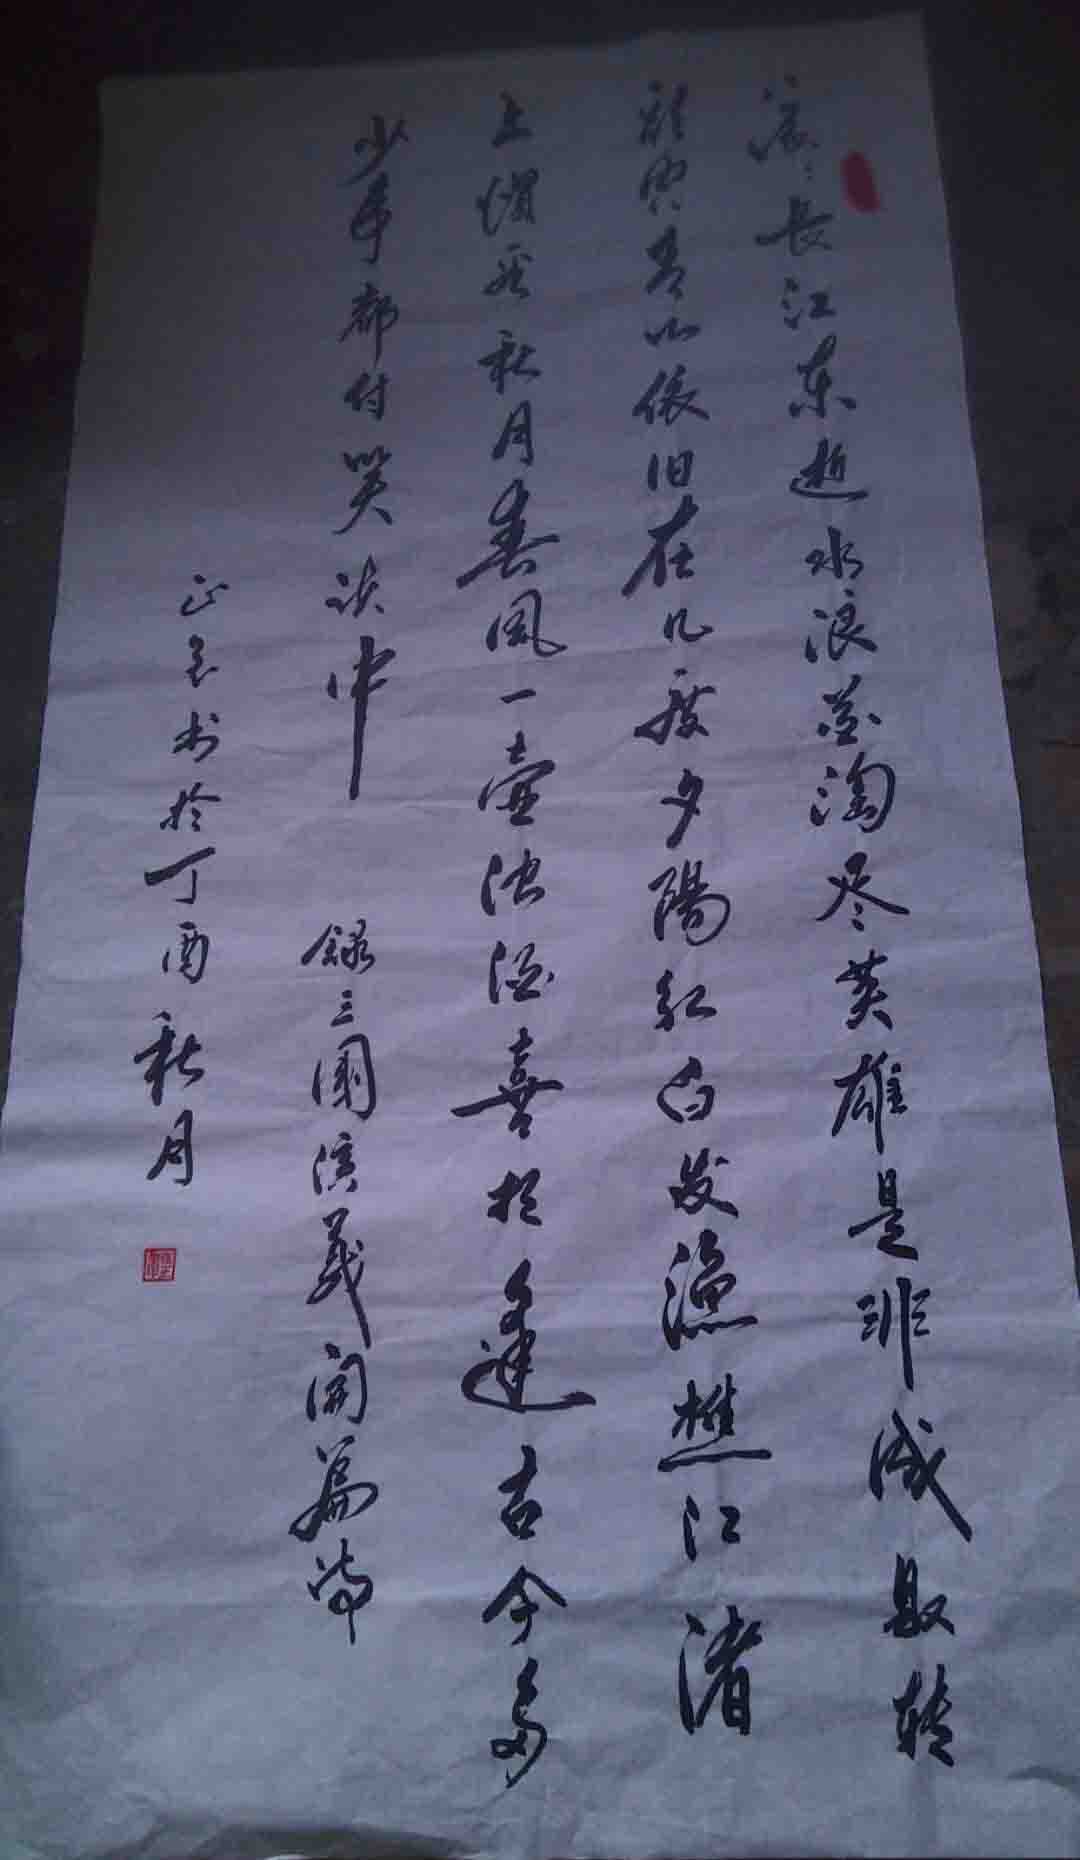 滚滚長江东逝水浪花淘尽英雄是非成敗转
頭空青山依旧在几度夕陽红白发漁樵江渚
上惯看秋月春風一壶浊酒喜相逢古今多
少事都付笑谈中 錄三國演義開篇词
正书於丁酉秋月